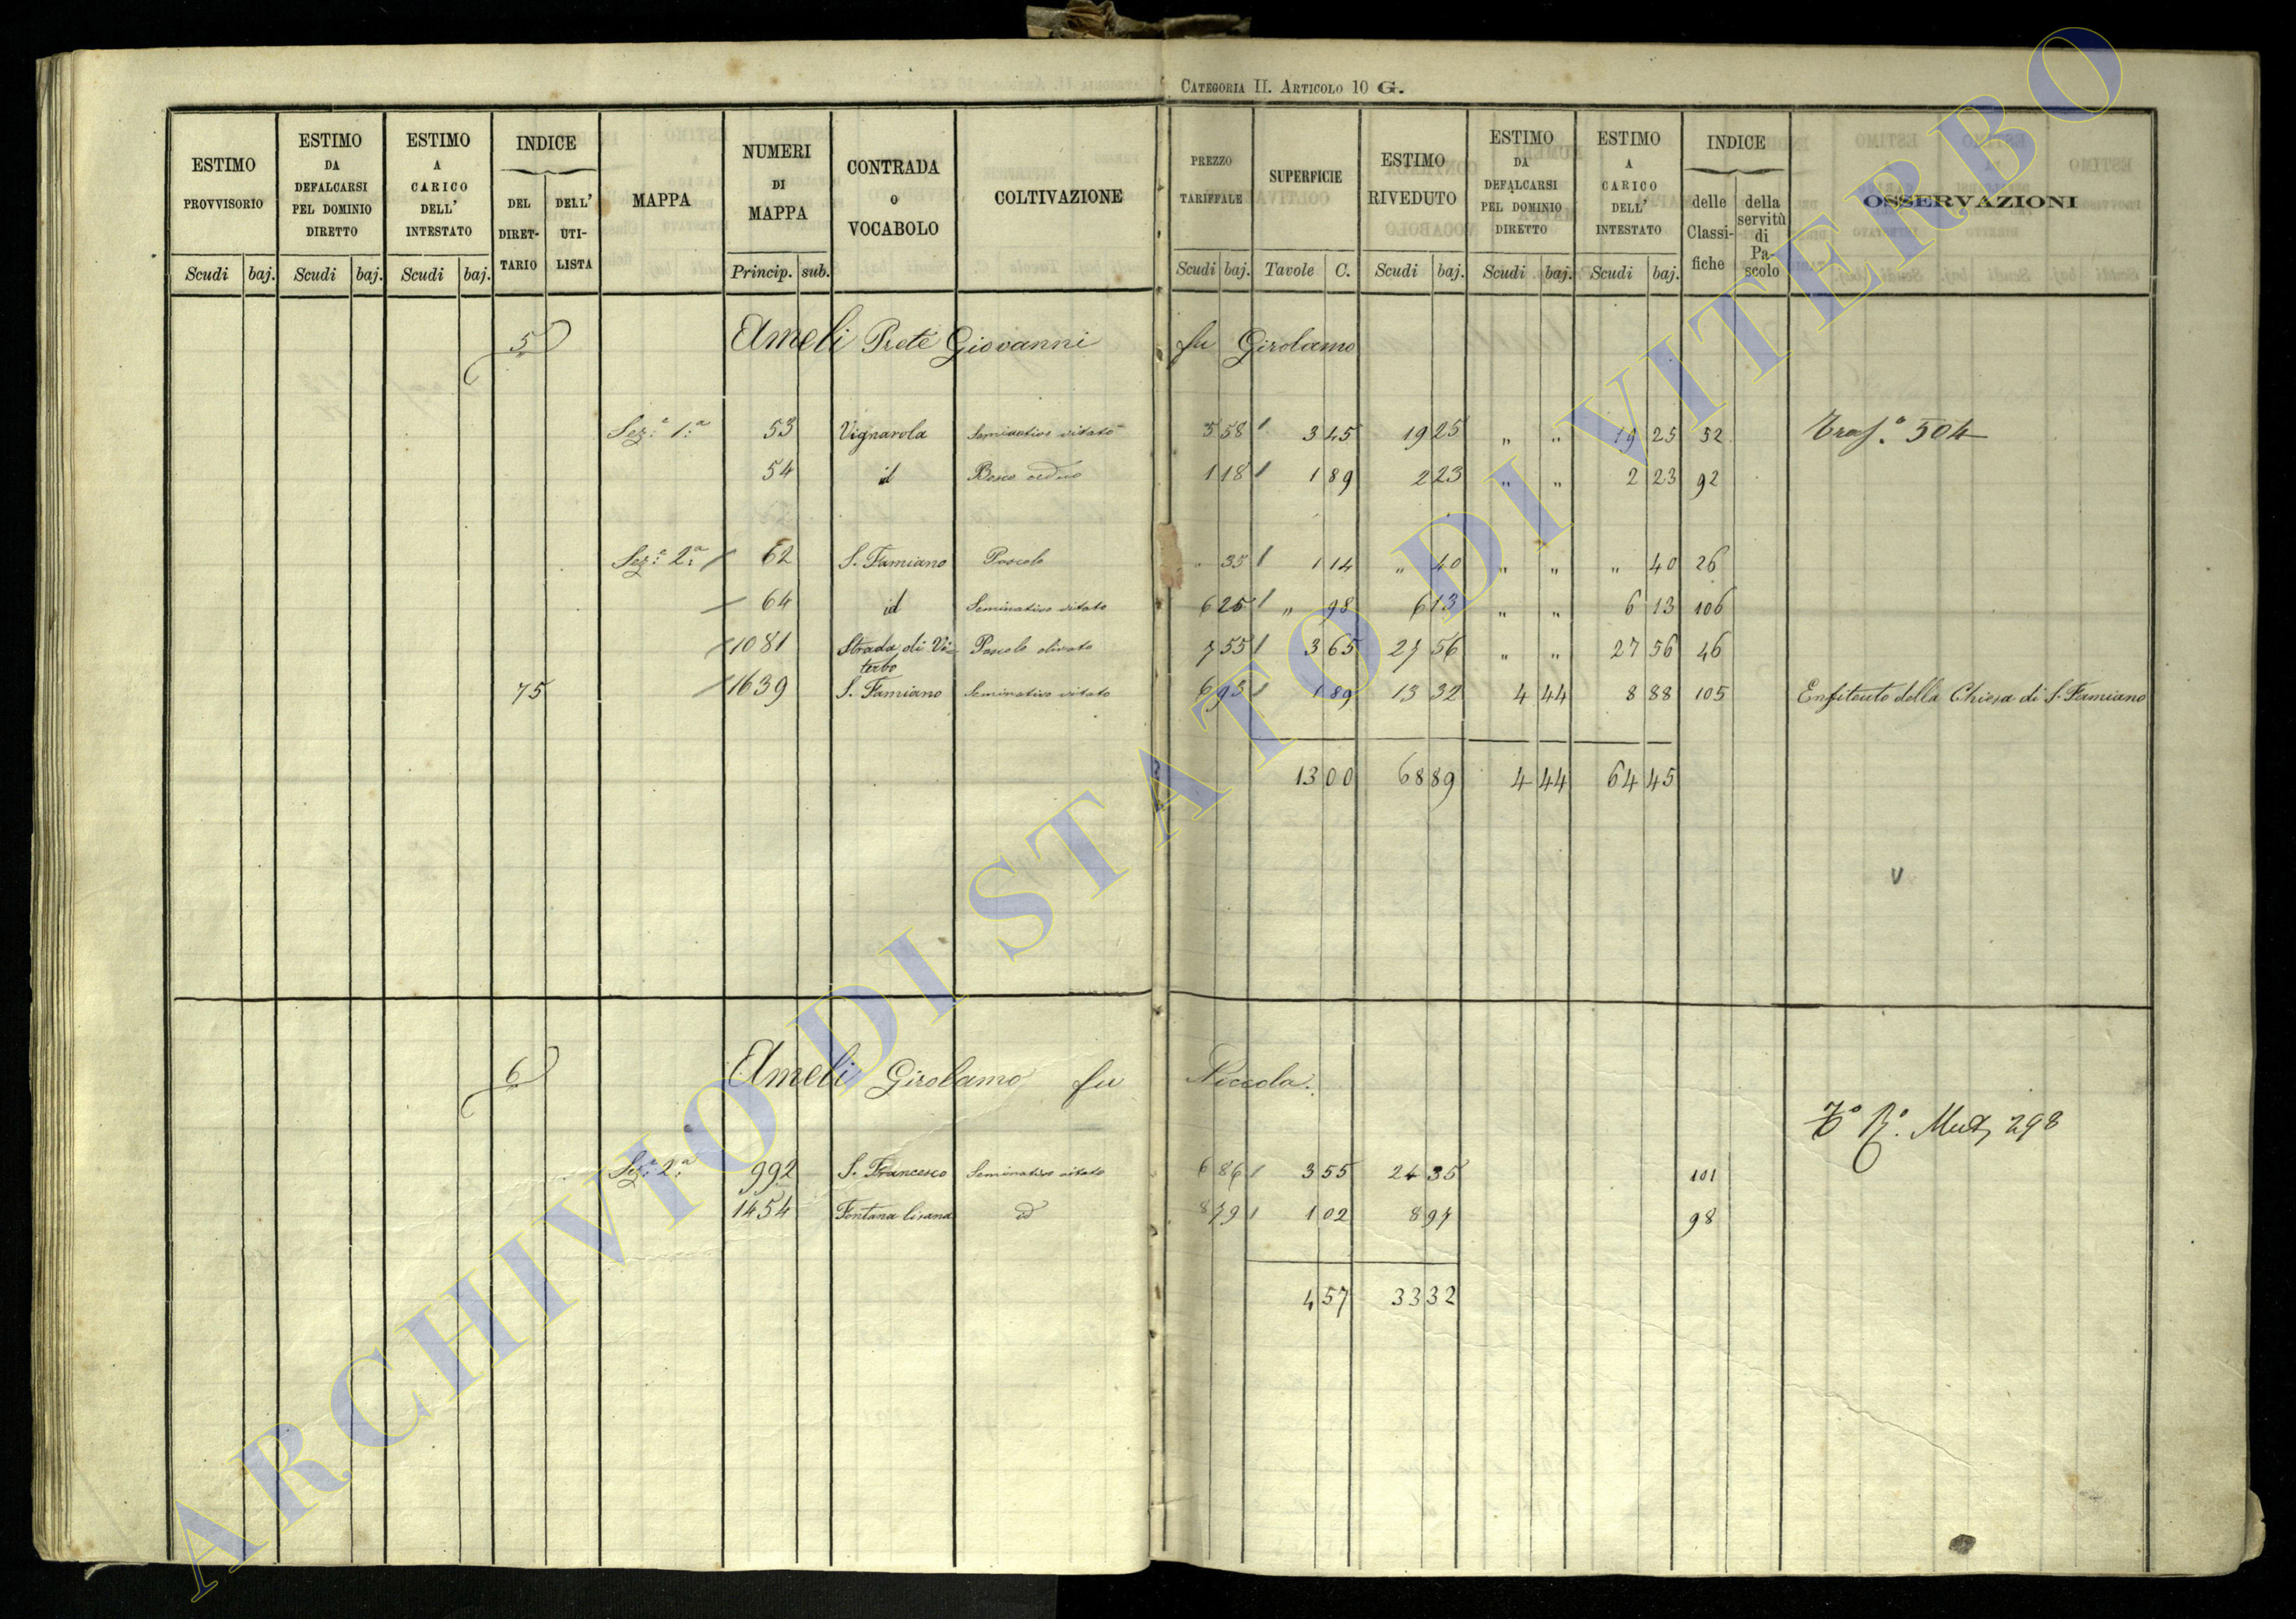 CATEGORIA II. ARTICOLO 10 G.
ESTIMO PROVVISORIO Scudi baj.
ESTIMO DA DEFALCARSI PEL DOMINIO DIRETTO Scudi baj.
ESTIMO A CARICO DELL' INTESTATO Scudi baj.
INDICE DEL DIRETTARIO DELL' UTILISTA
MAPPA
NUMERI DI MAPPA Princip. sub.
CONTRADA O VOCABOLO
COLTIVAZIONE
PREZZO TARIFFALE Scudi baj.
SUPERFICIE Tavole C.
ESTIMO RIVEDUTO Scudi baj.
ESTIMO DA DEFALCARSI PEL DOMINIO DIRETTO Scudi baj.
ESTIMO A CARICO DELL' INTESTATO Scudi baj.
INDICE delle Classifiche della servitù di Pascolo
OSSERVAZIONI
5 Ameli Prete Giovanni fu Girolamo
Sez:e 1:a 53 Vignarola Seminativo vitato 5 58 3 45 19 25 " " 19 25 52 Trasf.o 504
54 id Bosco ceduo 1 18 1 89 2 23 " " 2 23 92
Sez:e 2:a 62 S. Famiano Pascolo " 35 1 14 " 40 " " " 40 26
64 id Seminativo vitato 6 25 " 98 6 13 " " 6 13 106
1081 Strada di Vi= Pascolo olivato 7 55 3 65 27 56 " " 27 56 46
terbo
75 1639 S. Famiano Seminativo vitato 6 93 1 89 13 32 4 44 8 88 105 Enfiteuto della Chiesa di S. Famiano
13 00 68 89 4 44 64 45
V
6 Ameli Girolamo fu Niccola.
298
Sez:e 2:a 992 S. Francesco Seminativo vitato 6 86 3 55 24 35 101
1454 Fontana lisana id 8 79 1 02 8 97 98
4 57 33 32
ARCHIVIO DI STATO DI VITERBO